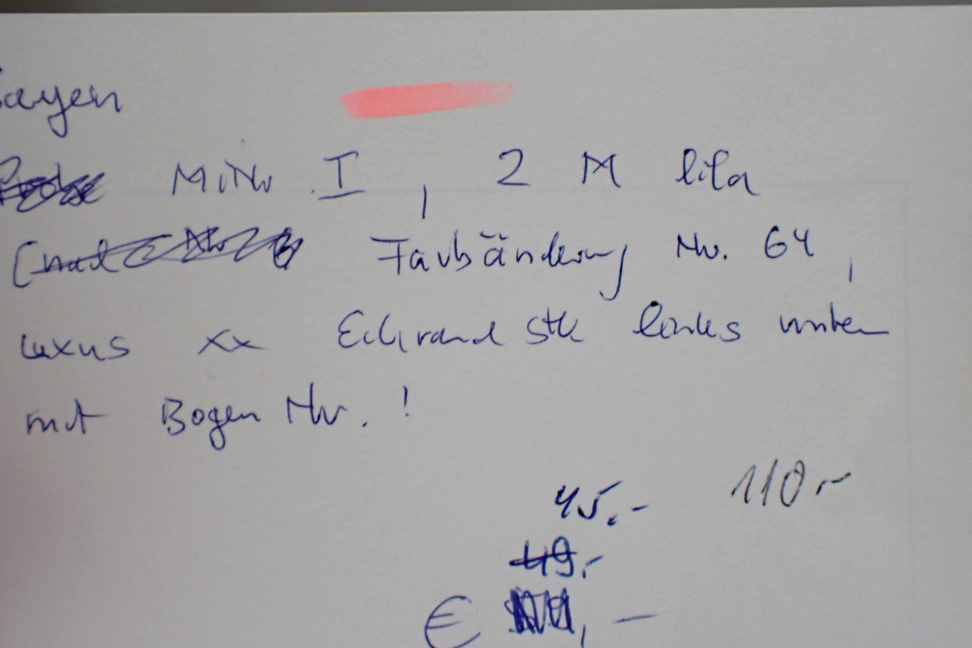 Bayern
MiNr. I, 2 M lila
Farbänderung Nr. 64,
Luxus xx Eckrand stk links unten
mit Bogen Nr.!
45.- 110.-
49.-
€ ,-